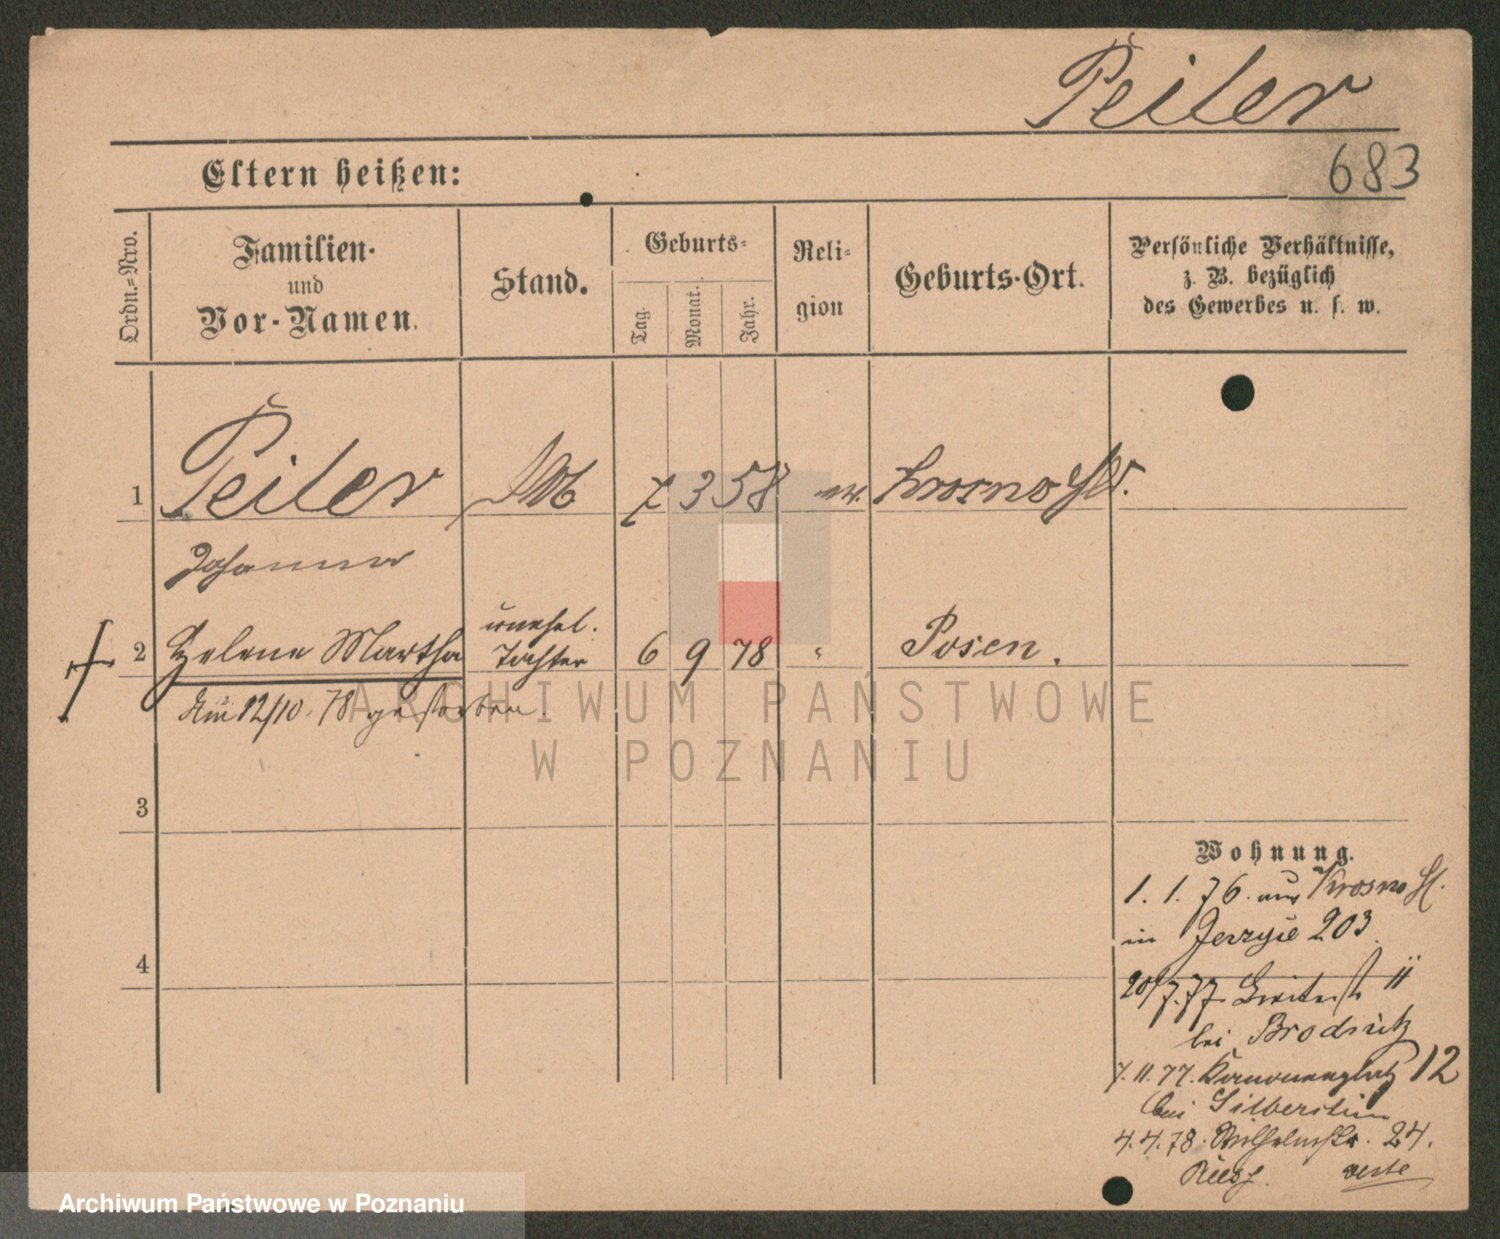 Peiler
683
Eltern heißen:
Ordn.=Nro.
Familien-
und
Vor-Namen.
Stand.
Geburts=
Tag.
Monat.
Jahr.
Reli=
gion
Geburts-Ort.
Persönliche Verhältnisse,
z. B. bezüglich
des Gewerbes u. s. w.
1 Peiler 7 3 58 Krosno
Johanna
unehel.
2 Helene Martha Tochter 6 9 78 " Posen.
Am 12/10. 78 gestorben.
3
4
Wohnung.
1. 1. 76. aus Krosno
in Jerzyce 203
20/7.77. II
bei
7.11.77. Kanonenplatz 12
bei Silberstein
4.4.78. Wilhelmstr. 24.
ARCHIWUM PAŃSTWOWE
W POZNANIU
Archiwum Państwowe w Poznaniu